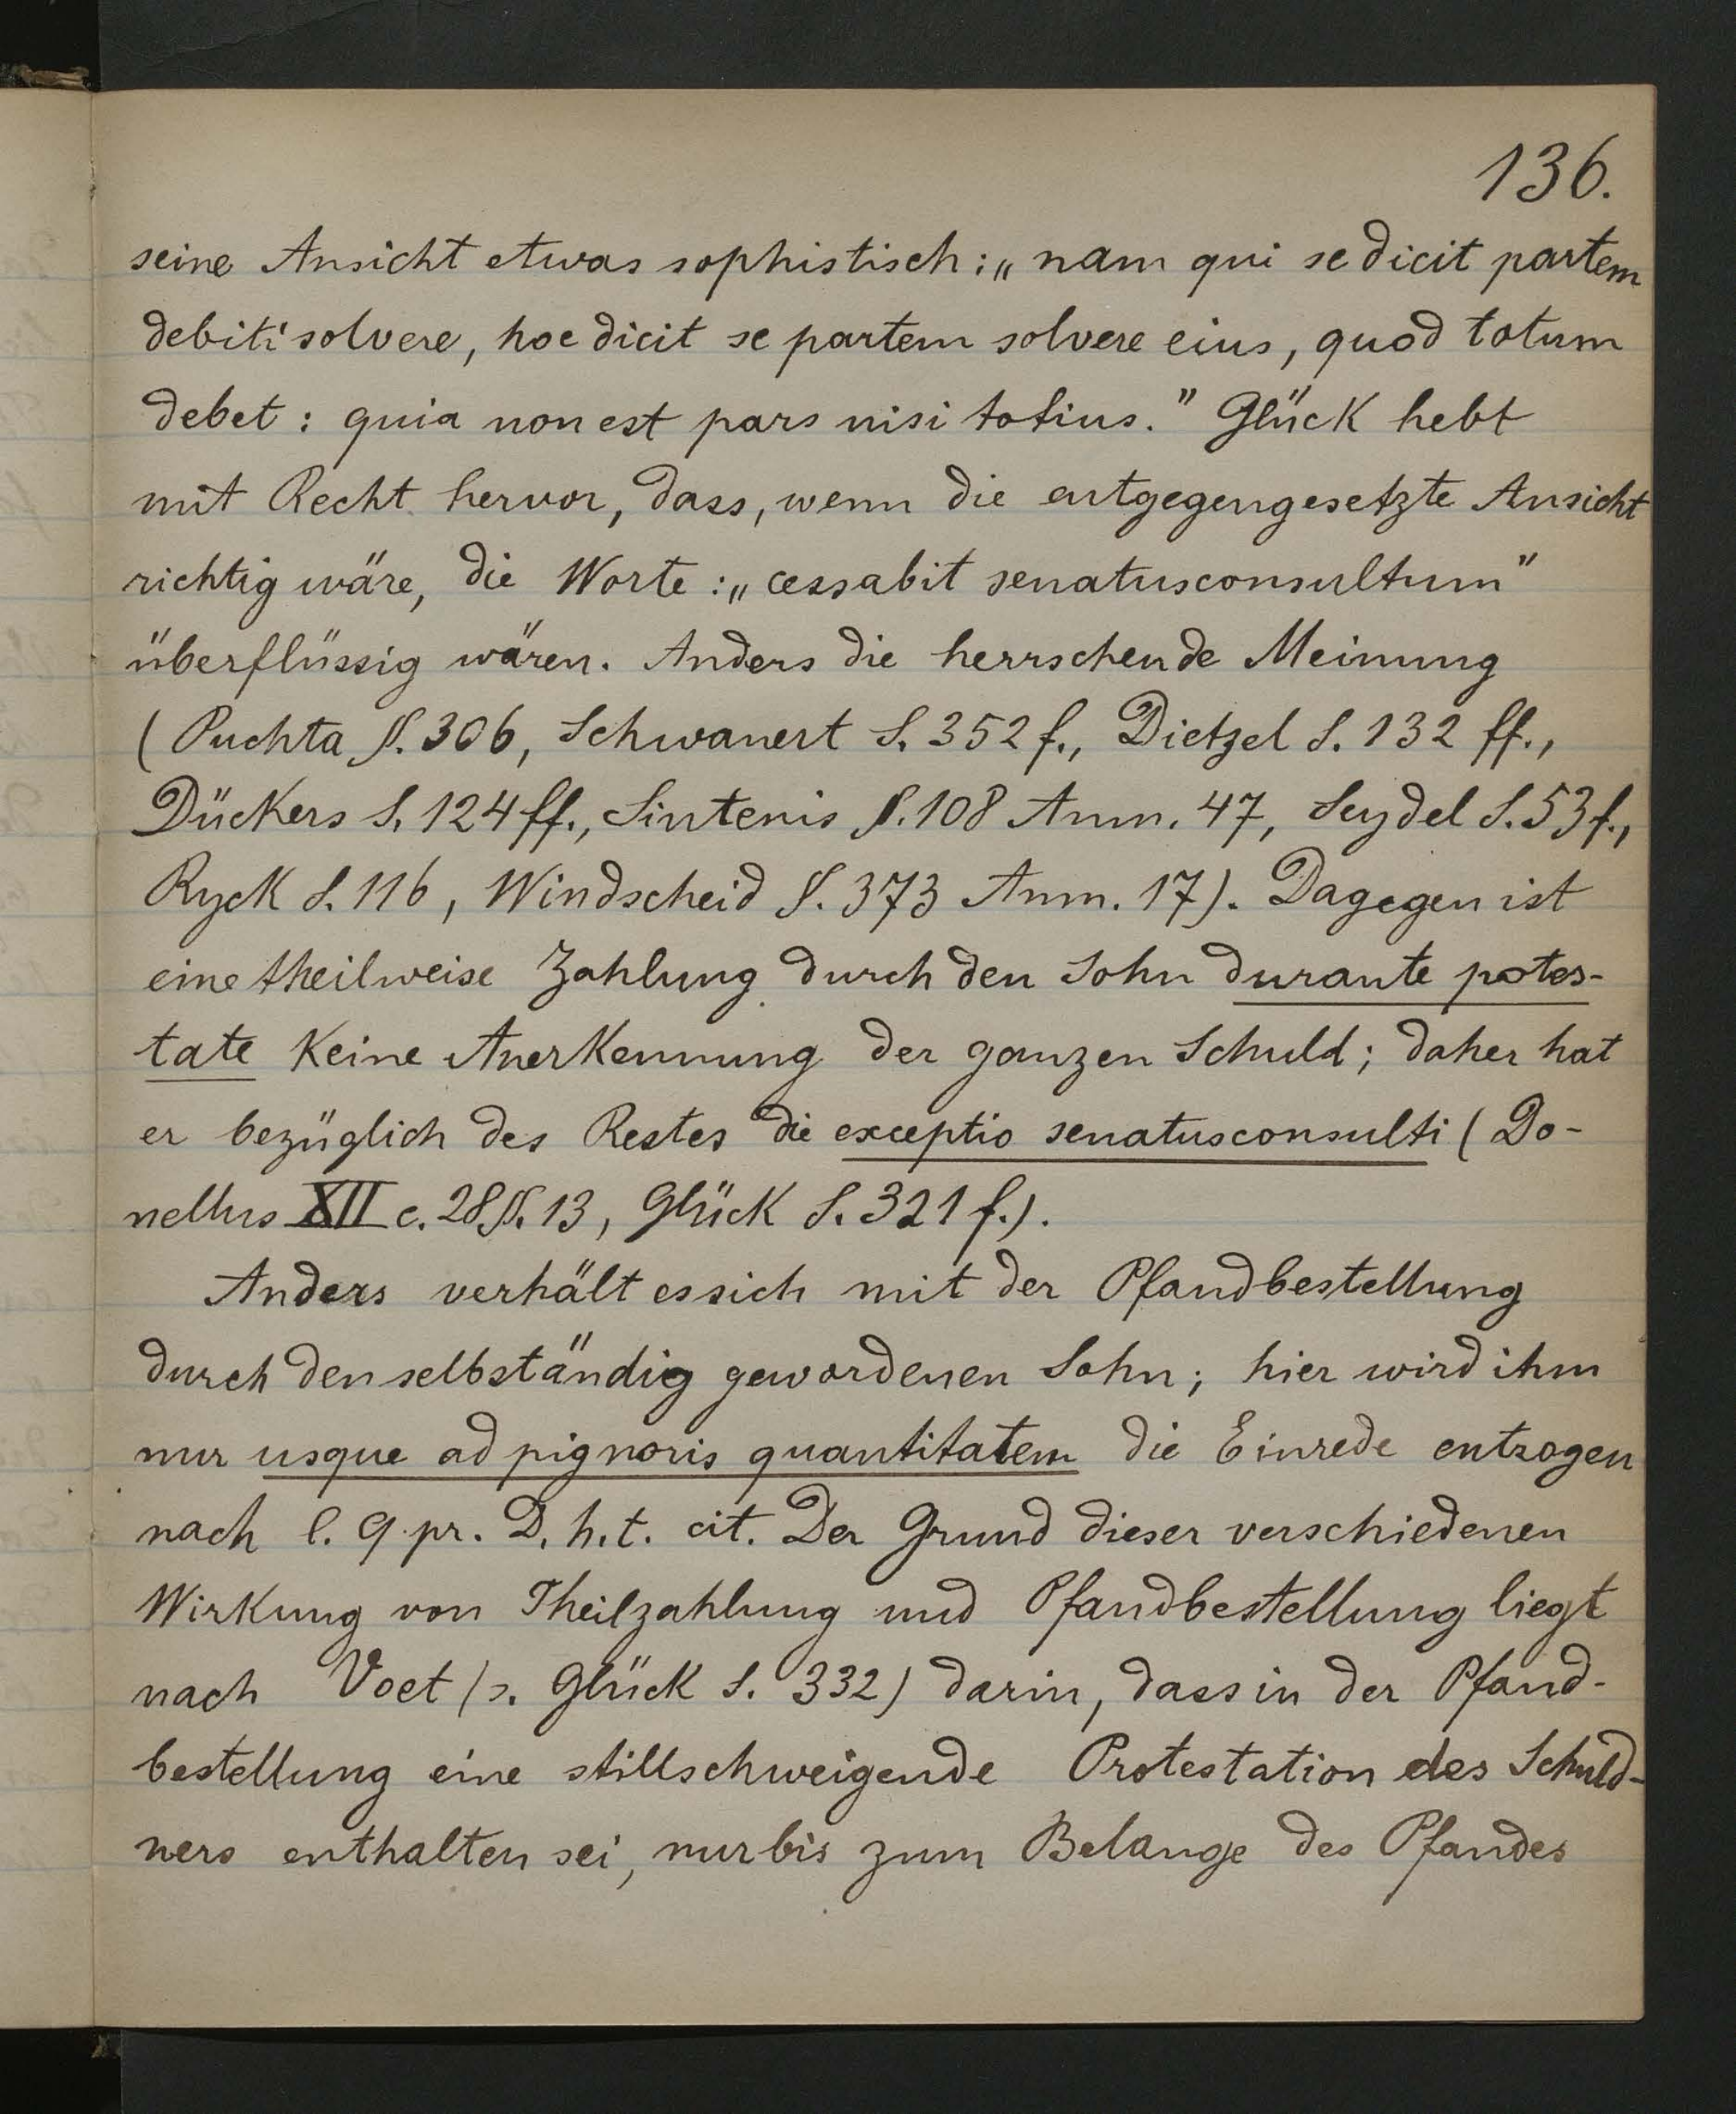 136.
seine Ansicht etwas sophistisch: „nam qui se dicit partem
debiti solvere, hoc dicit se partem solvere eius, quod totum
debet: quia non est pars nisi totius." Glück hebt
mit Recht hervor, dass, wenn die entgegengesetzte Ansicht
richtig wäre, die Worte: „cessabit senatusconsultum"
überflüssig wären. Anders die herrschende Meinung
(Puchta §. 306, Schwanert S. 352 f., Dietzel S. 132 ff.,
Dückers S. 124 ff., Sintenis §. 108 Anm. 47, Seydel S. 53 f.,
Ryck S. 116, Windscheid §. 373 Anm. 17). Dagegen ist
eine theilweise Zahlung durch den Sohn durante potes-
tate keine Anerkennung der ganzen Schuld; daher hat
er bezüglich des Restes die exceptio senatusconsulti (Do-
nellus XII c. 28 §. 13, Glück S. 321 f.).
Anders verhält es sich mit der Pfandbestellung
durch den selbständig gewordenen Sohn; hier wird ihm
nur usque ad pignoris quantitatem die Einrede entzogen
nach l. 9 pr. D. h. t. cit. Der Grund dieser verschiedenen
Wirkung von Theilzahlung und Pfandbestellung liegt
nach Voet (s. Glück S. 332) darin, dass in der Pfand-
bestellung eine stillschweigende Protestation des Schuld-
ners enthalten sei, nur bis zum Belange des Pfandes